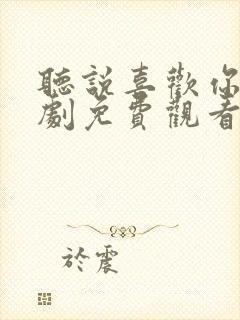 聽說喜歡你
劇免費觀看
於震